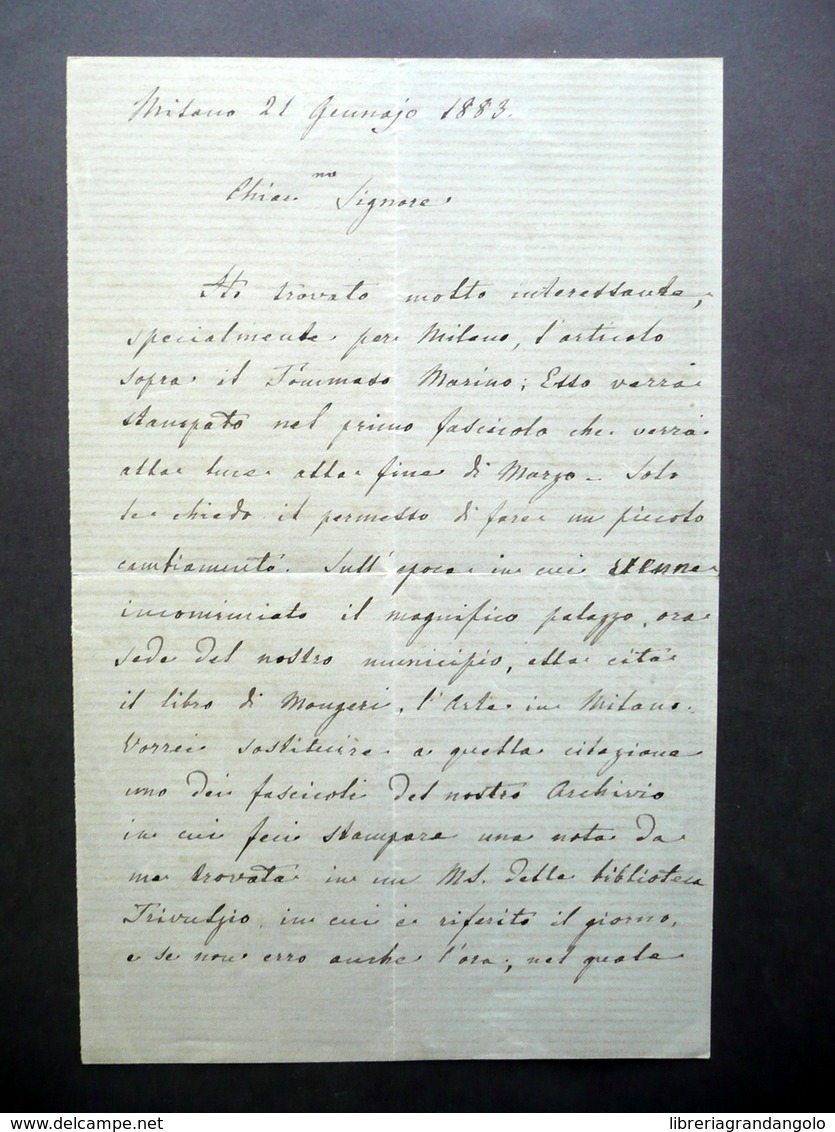 Milano 21 Gennajo 1883.
Chiar.mo Signore.
Ho trovato molto interessante,
specialmente per Milano, l'articolo
sopra il Tommaso Marino; Esso verrà
stampato nel primo fascicolo che verrà
alla luce alla fine di Marzo. Solo
le chiedo il permesso di fare un piccolo
cambiamento. Sull'epoca in cui venne
incominciato il magnifico palazzo, ora
sede del nostro municipio, ella cita
il libro di Mongeri, l'Arte in Milano.
Vorrei sostituire a quella citazione
uno dei fascicoli del nostro Archivio
in cui feci stampare una nota da
me trovata in un MS. della biblioteca
Trivulzio, in cui è riferito il giorno,
e se non erro anche l'ora, nel quale
delcampe.net
libreriagrandangolo